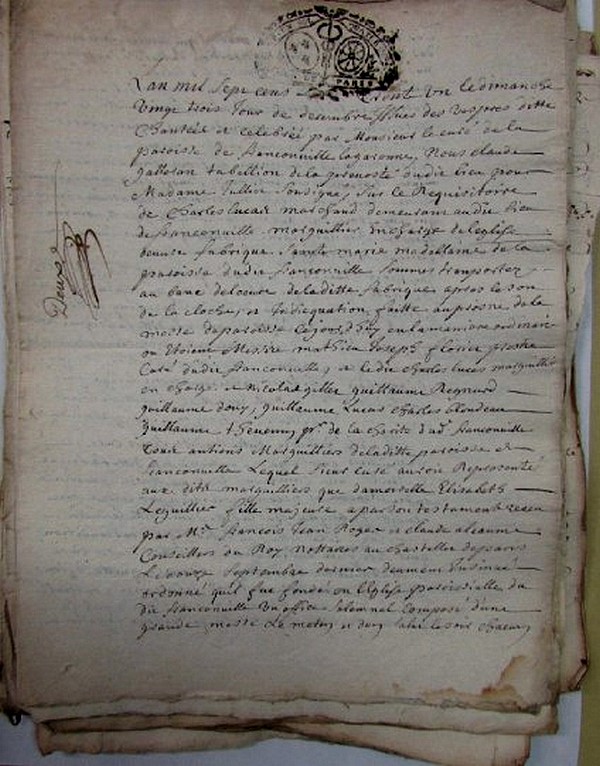 PARIS
Lan mil sept cens trente un le dimanche
Vingt trois Jour de decembre Issues des vespres ditte
Chantées et celebrée par Monsieur le curé de la
paroisse de franconville lagarenne, Nous claude
tabellion de la prevosté dudit lieu pour
Madame Sousigné, Sur le Requisitoire
de Charles lucas marchand demeurant audit lieu
de franconville marguillier En charge de leglise
fabrique Sainte marie madellaine de la
paroisse dudit franconville Sommes transportez
au banc deloeuvre de laditte fabrique apres le son
de la cloche, et Indiquation faitte au prosne de la
messe de paroisse cejourdhuy en la maniere ordinaire
ou Etoient Messire mathieu Joseph florier prestre
Curé dudit franconville, et ledit charles lucas marguillier
en charge et Nicolas gillet guillaume Regnard
guillaume douy, guillaume Lucas Charles
guillaume thevenin pr. de la charité dud. franconville
Tous antiens Marguilliers deladitte paroisse de
franconville Lequel Sieur Curé auroit Representé
aux dits marguilliers que damoiselle Elisabeth
Leguillier fille majeure a par son testament receu
par Me. francois Jean Roger et claude aleaume
Conseillers du Roy Nottaires au chastellet deparis
Le onze Septembre dernier deument Insinué
ordonné quil fut fondé en lEglise paroissialle du
dit franconville Un office Solemnel composé dune
grande messe Le matin et dun salut le soir chacun
Douze